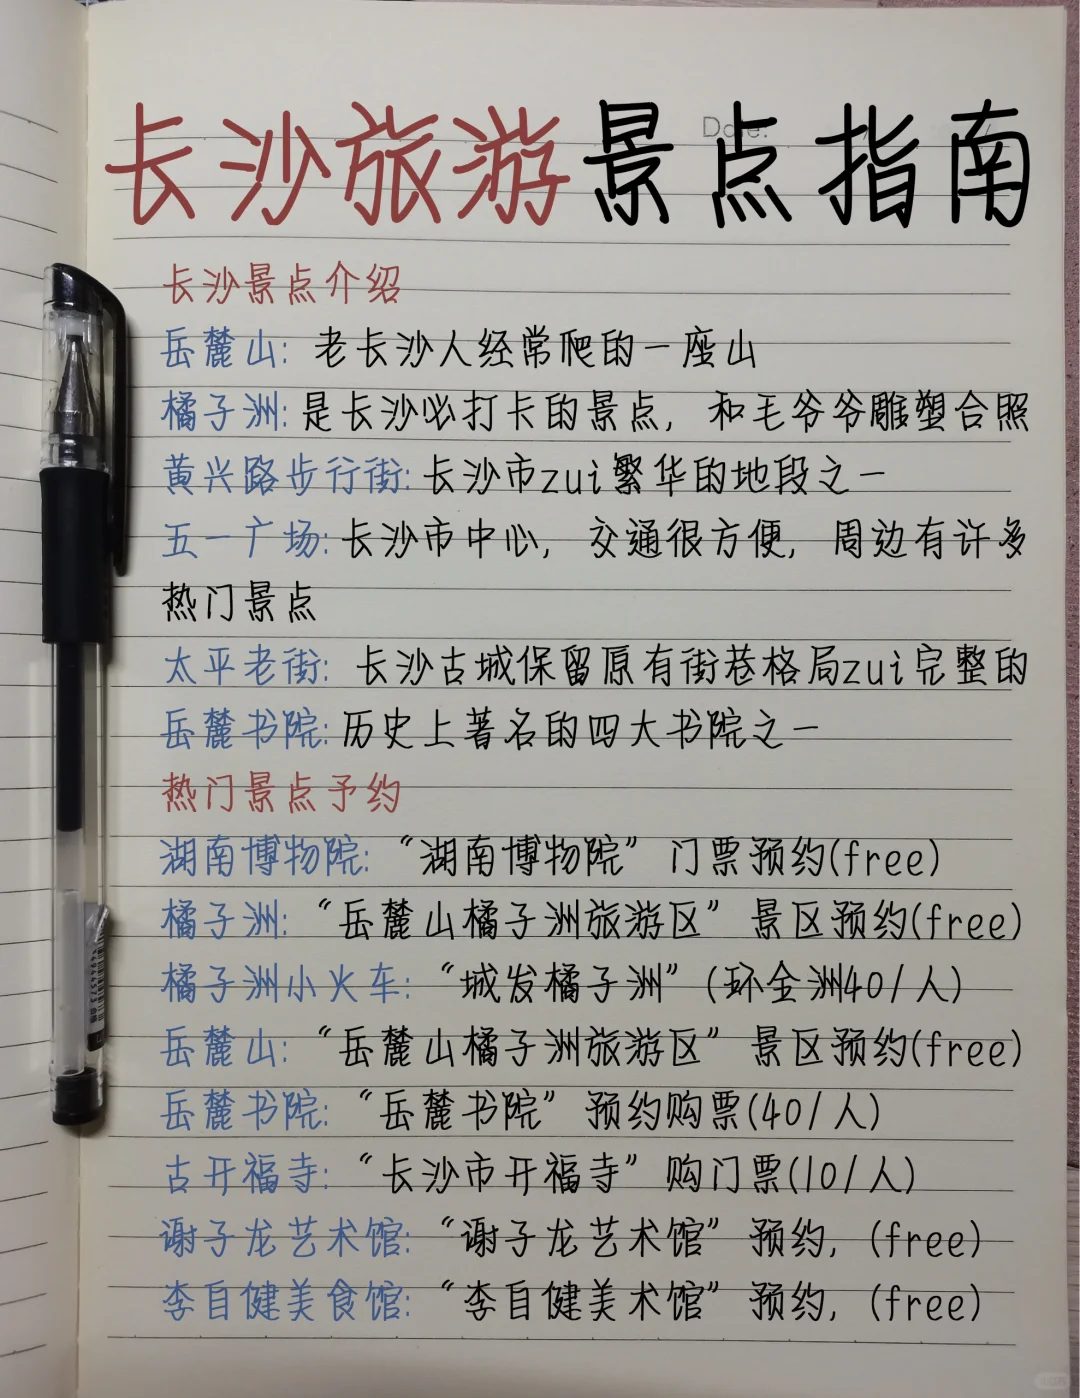 长沙旅游景点指南
长沙景点介绍
岳麓山: 老长沙人经常爬的一座山
橘子洲: 是长沙必打卡的景点, 和毛爷爷雕塑合照
黄兴路步行街: 长沙市zui繁华的地段之一
五一广场: 长沙市中心, 交通很方便, 周边有许多
热门景点
太平老街: 长沙古城保留原有街巷格局zui完整的
岳麓书院: 历史上著名的四大书院之一
热门景点予约
湖南博物院: “湖南博物院” 门票预约(free)
橘子洲: “岳麓山橘子洲旅游区” 景区预约(free)
橘子洲小火车: “城发橘子洲” (环金洲40/人)
岳麓山: “岳麓山橘子洲旅游区” 景区预约(free)
岳麓书院: “岳麓书院” 预约购票(40/人)
古开福寺: “长沙市开福寺” 购门票(10/人)
谢子龙艺术馆: “谢子龙艺术馆” 预约, (free)
李自健美食馆: “李自健美术馆” 预约, (free)